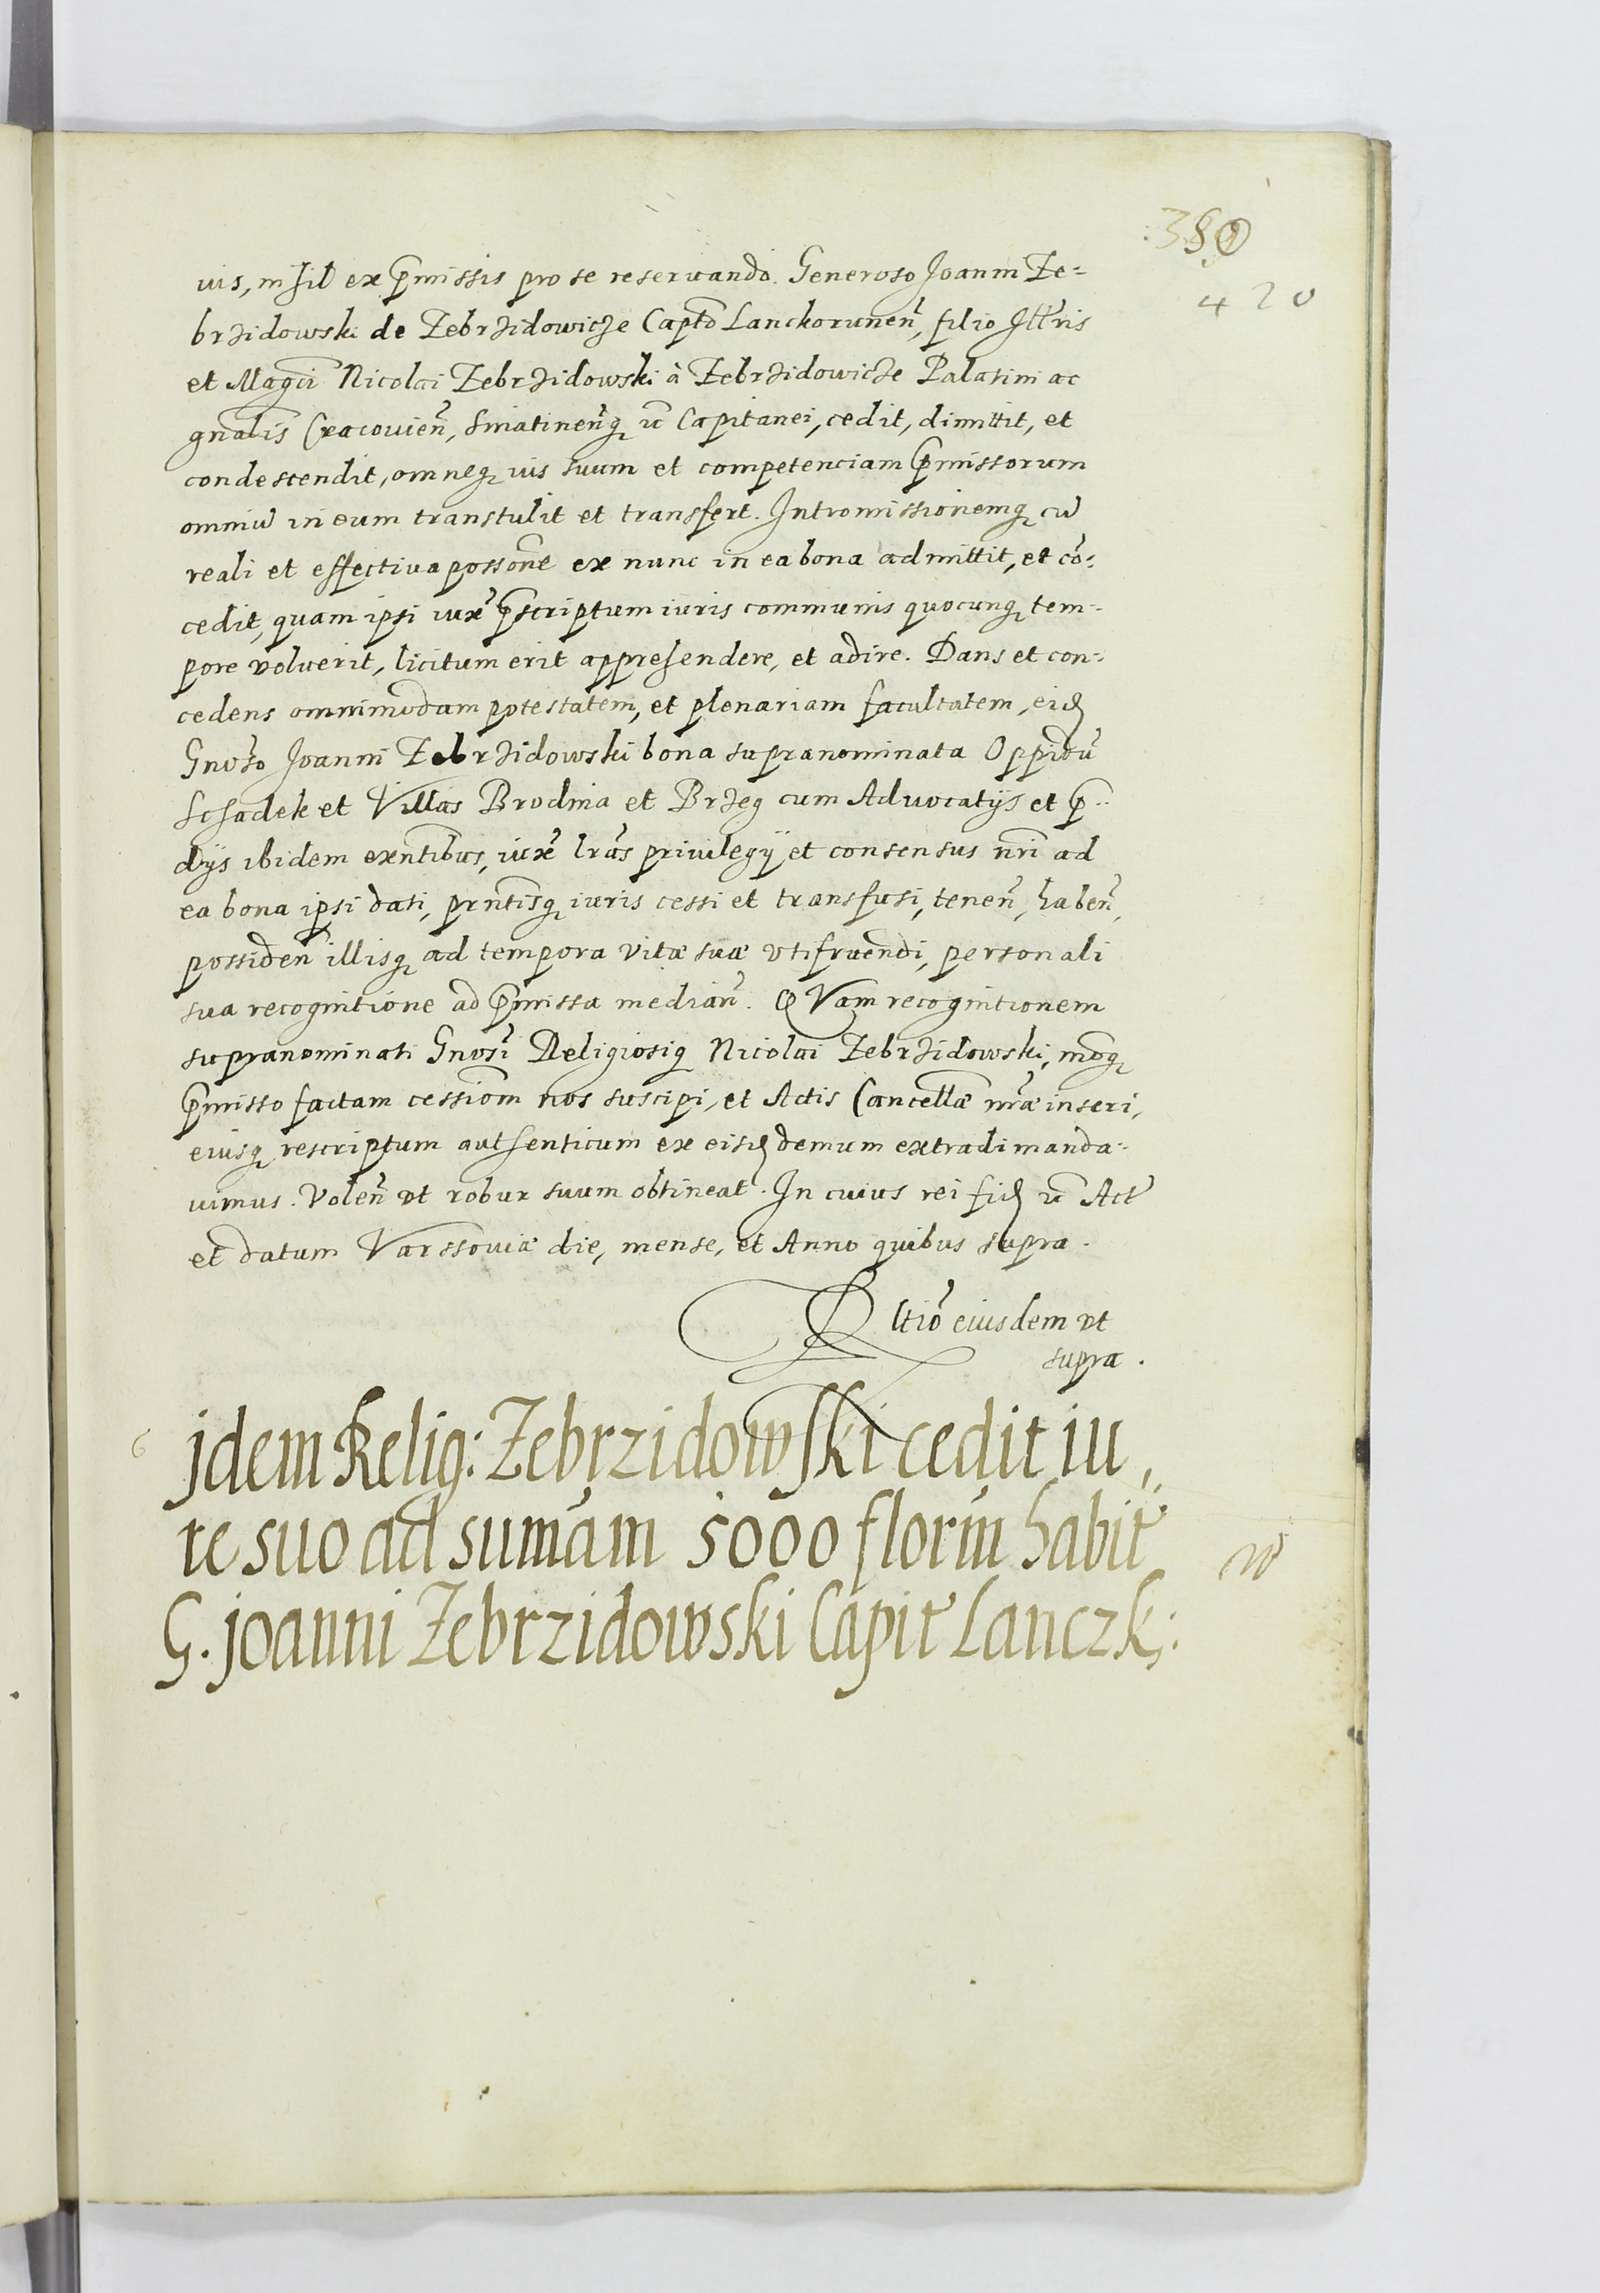 389
420
uis, nihil ex p̄missis pro se reseruando. Generoso Joanni Ze=
brzidowski de Zebrzidowicze Capt̄o Lanckorunen̄, filio Illr̄is
et Magci Nicolai Zebrzidowski à Zebrzidowicze Palatini ac
gnal̄is Cracouien̄, Sniatinen̄q₃ ec̄ Capitanei, cedit, dimittit, et
condescendit, omneq₃ ius suum et competenciam p̄missorum
omniū in eum transtulit et transfert. Intromissionemq₃ cū
reali et effectiua possone̅ ex nunc in ea bona admittit, et cō=
cedit, quam ipsi iux̄ p̄scriptum iuris communis quocunq₃ tem=
pore voluerit, licitum erit apprehendere, et adire. Dans et con=
cedens omnimodam potestatem, et plenariam facultatem, eid
Gnōso Joanni Zebrzidowski bona supranominata Oppidū
Schadek et Villas Brodnia et Brzeg cum Aduocatijs et p̄=
dijs ibidem exn̄tibus, iux̄ lr̄as priuilegij et consensus nr̄i ad
ea bona ipsi dati, prn̄tisq₃ iuris cessi et transfusi, tenen̄, haben̄,
possiden̄ illisq₃ ad tempora vitæ suæ vtifruendi, personali
sua recognitione ad p̄missa median̄. QVam recognitionem
supranominati Gnōsi Religiosiq₃ Nicolai Zebrzidowski, mōq₃
p̄misso factam cessiōm nos suscipi, et Actis Cancellæ nr̄æ inseri,
eiusq₃ rescriptum authenticum ex eisd demum extradi manda=
uimus. Volen̄ vt robur suum obtineat. In cuius rei fid ec̄ Act̄
et datum Varssouiæ die, mense, et Anno quibus supra.
Rltiō eiusdem vt
supra.
6 jdem Relig: Zebrzidowski cedit iu,,
re suo ad sum̄am 5000 florin̄ habit̄
G. joanni Zebrzidowski Capit̄ Lanczk: